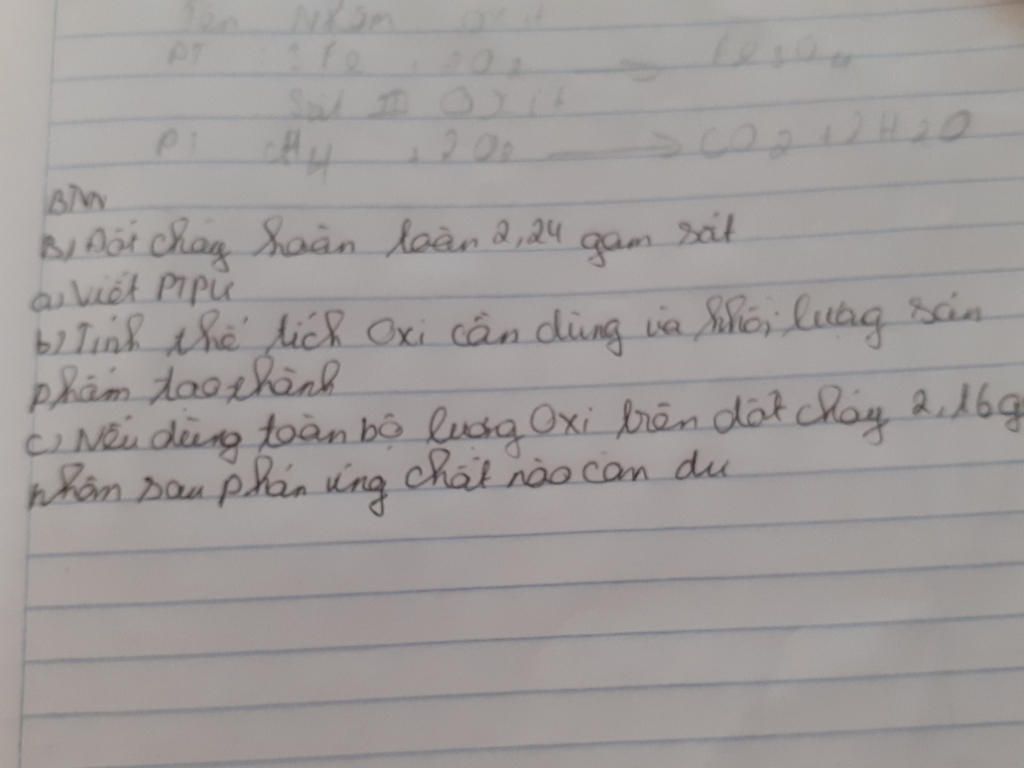 Tên Nhôm Oxit
PT : 3Fe + 2O2 → Fe3O4
Sắt III Oxit
PT CH4 + 2O2 → CO2 + 2H2O
BTVN
B, Đốt cháy hoàn toàn 2,24 gam sắt
a, Viết PTPƯ
b) Tính thể tích Oxi cần dùng và khối lượng sản
phẩm tạo thành
c) Nếu dùng toàn bộ lượng Oxi trên đốt cháy 2,16g
nhôm sau phản ứng chất nào còn dư